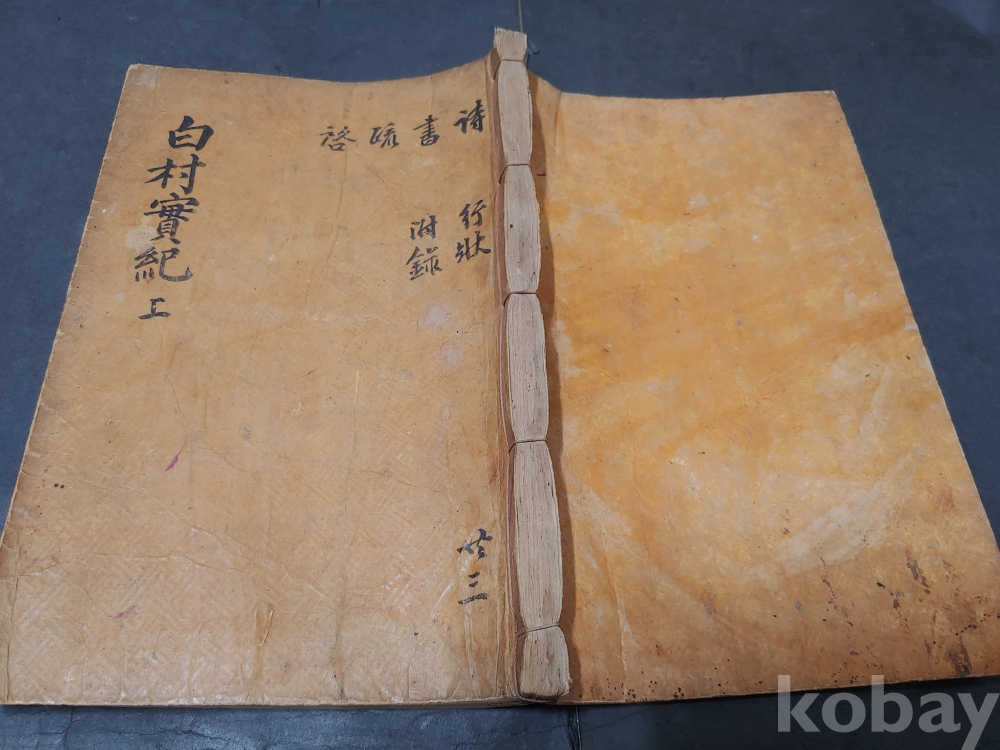 白村實紀 上
詩
書
疏
啓
行狀
附錄
共三
kobay